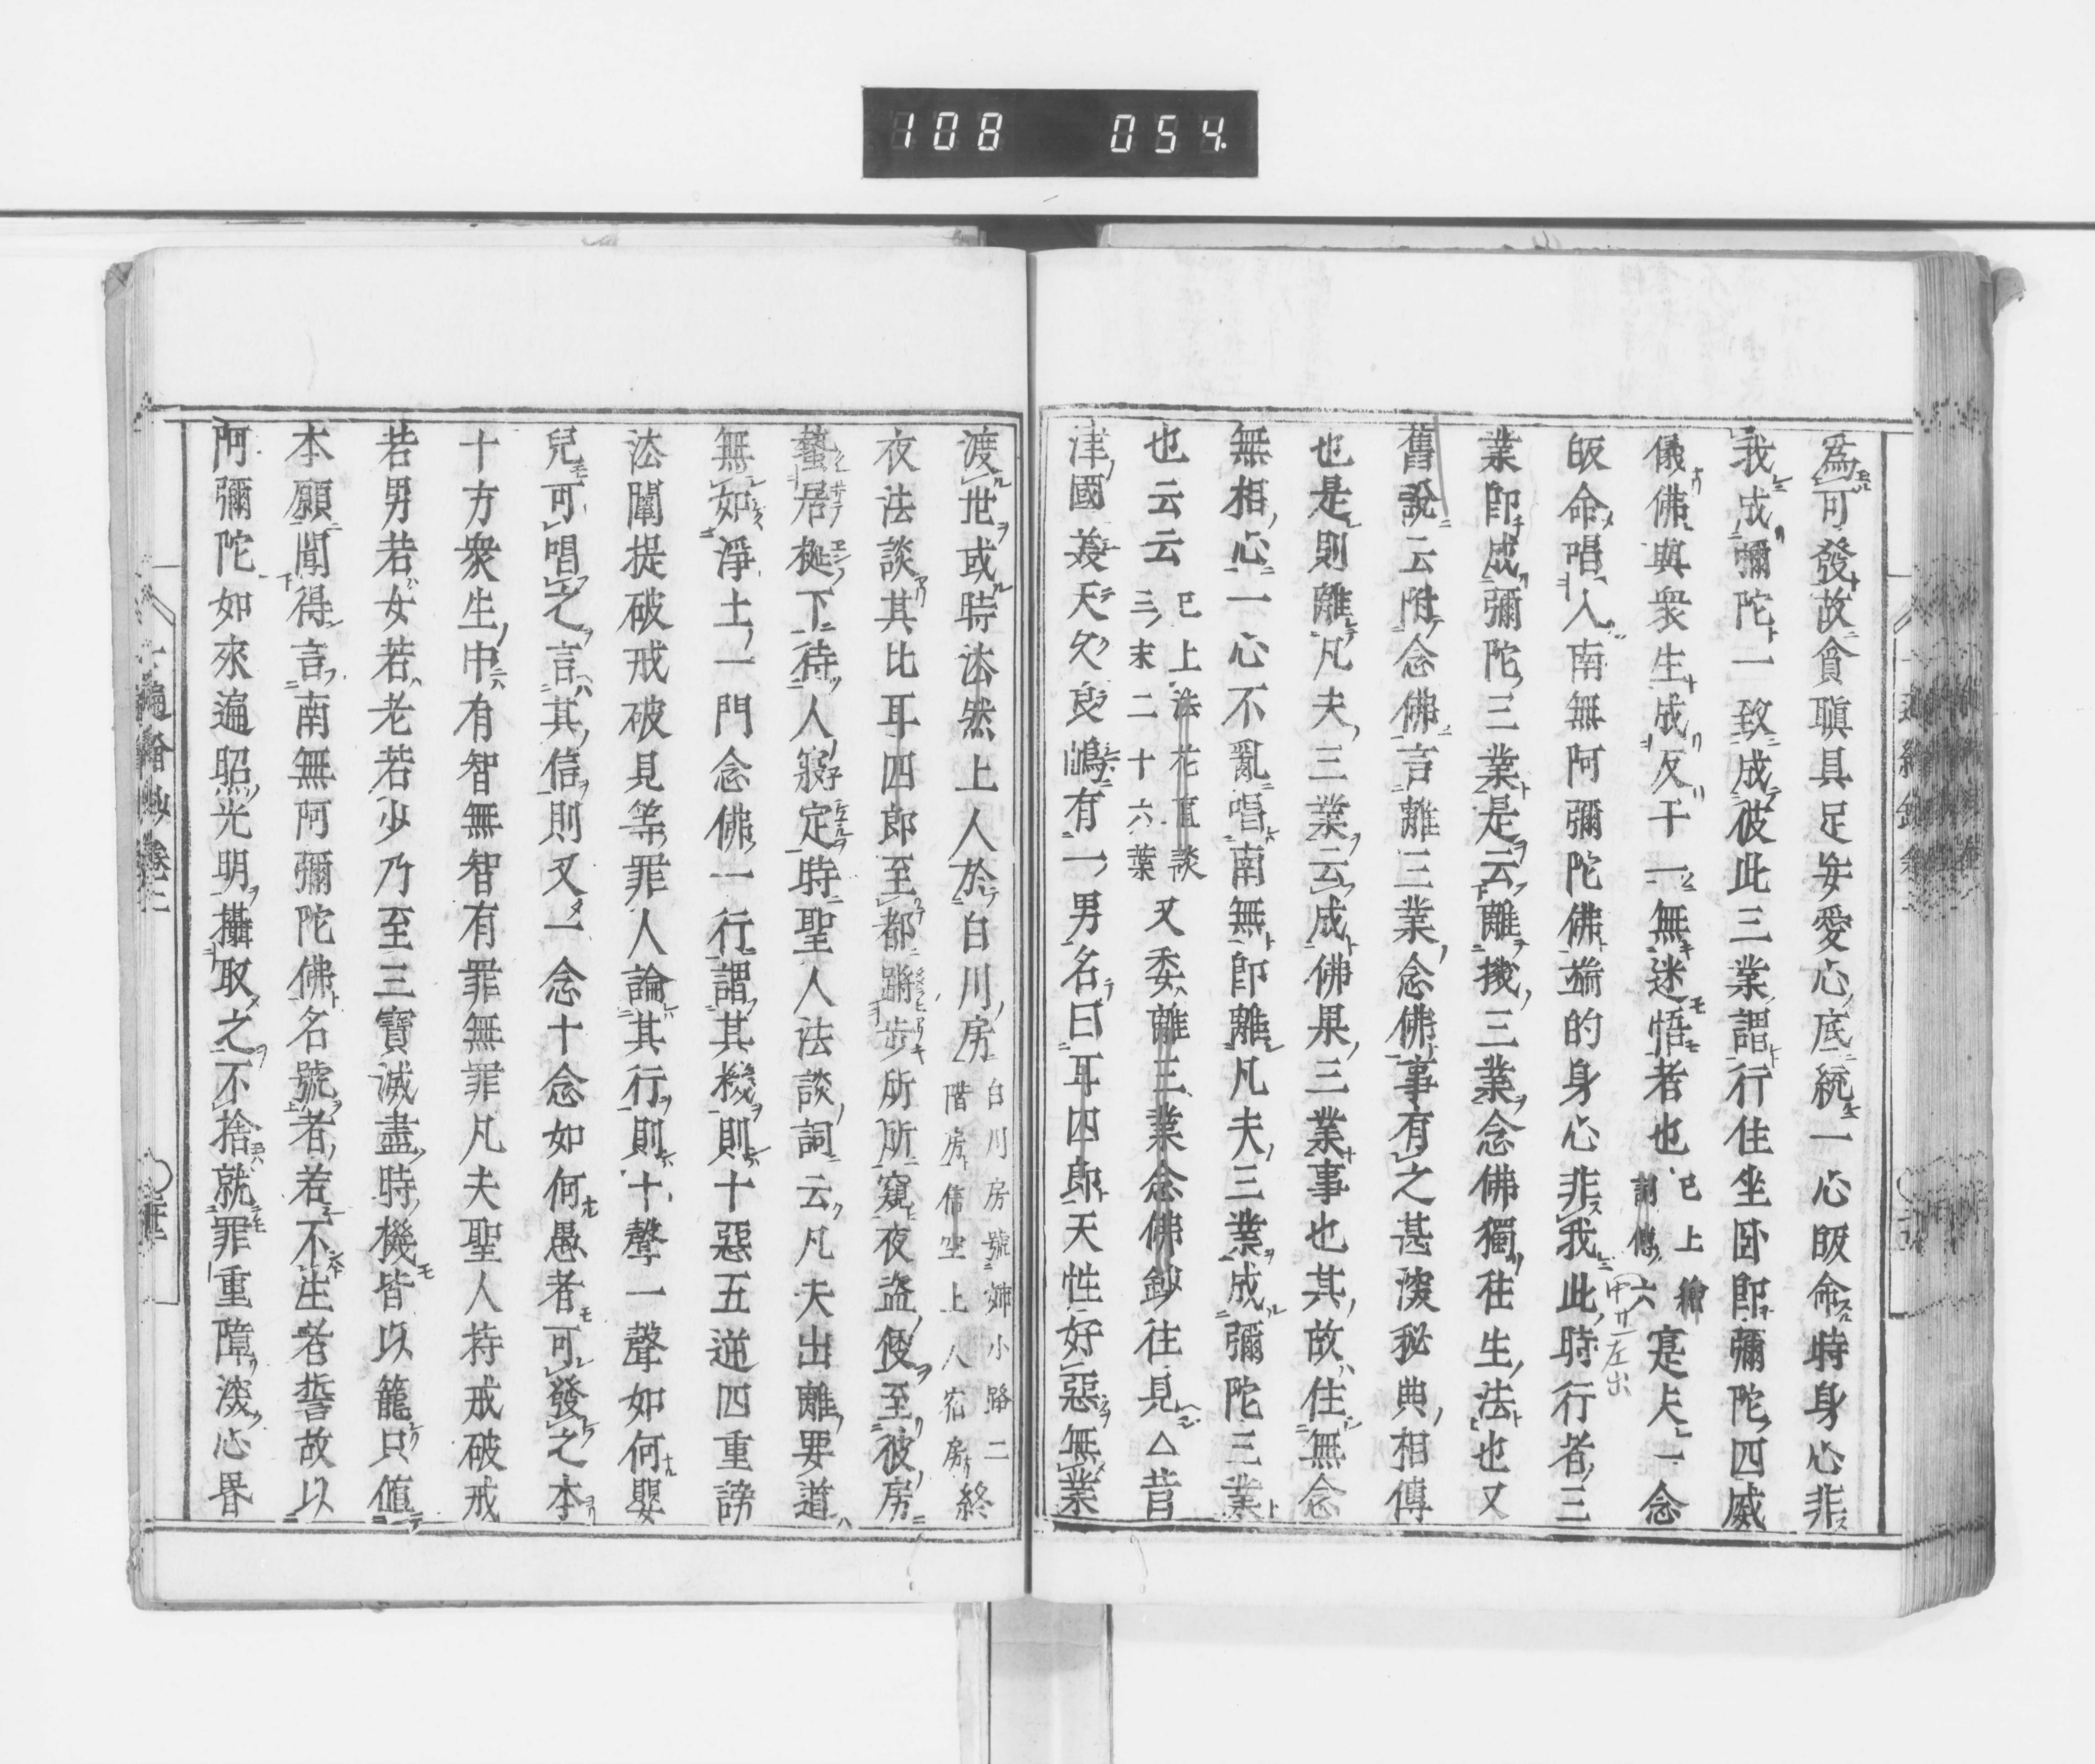 108 054
爲可發故貪瞋具足妄愛心底統一心皈命時身心非
我成彌陀一致成彼此三業謂行住坐臥即彌陀四威
儀佛與衆生成反干一無迷悟者也
皈命唱入南無阿彌陀佛端的身心非我此時行者三
業即成彌陀三業是云離機三業念佛獨往生法也又
舊說云附念佛言離三業念佛事有之甚深秘典相傳
也是則離凡夫三業云成佛果三業事也其故住無念
無相心一心不亂唱南無即離凡夫三業成彌陀三業
也云云
已上法花直談
三末二十六葉
又委離三業念佛鈔往見△昔
津國義天久良嶋有一男名曰耳四郎天性好惡無業
渡世或時法然上人於白川房
白川房號姉小路二
階房信空上人宿房
終
夜法談其比耳四郎至都蹣步所所窺夜盜便至彼房
蟄居椽下待人寢定時聖人法談詞云凡夫出離要道
無如淨土一門念佛一行謂其機則十惡五逆四重謗
法闡提破戒破見等罪人論其行則十聲一聲如何嬰
兒可唱之言其信則又一念十念如何愚者可發之本
十方衆生中有智無智有罪無罪凡夫聖人持戒破戒
若男若女若老若少乃至三寶滅盡時機皆以籠只値
本願聞得言南無阿彌陀佛名號者若不生者誓故以
阿彌陀如來遍照光明攝取之不捨就罪重障深心晷